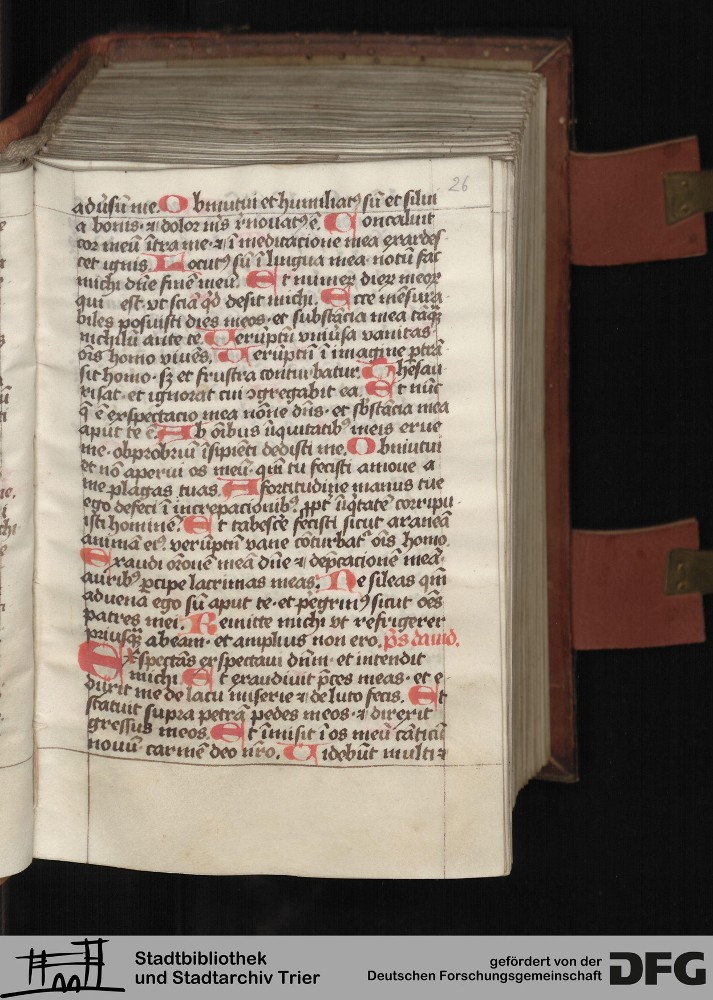 26
adūsū me. Obmutui et humiliatꝰ sū et silui
a bonis· ⁊ dolor mꝰs r̄nouatꝰ ē. Concaluit
cor meū ītra me· ⁊ ī meditacione mea exardes
cet ignis. Locutꝰ sū ī lingua mea· notū fac
michi dn̄e finē meū. Et numeꝝ dieꝝ meoꝝ
qui est· vt sciā qd̄ desit michi. Ecce mēsura
biles posuisti dies meos· et substācia mea tāqꝫ
nichilū ante te. Ueruptū vniūsa vanitas·
ōis homo viuēs. Ueruptū ī imagine ꝑtrā
sit homo· sꝫ et frustra conturbatur. Thesau
risat· et ignorat cui ↄgregabit ea. Et nūc
q̄ ē exspectacio mea nōne dn̄s· et sb̄stācia mea
aput te ē. Ab ōibus īiquitatibꝰ meis erue
me· obprobriū īsipiēti dedisti me. Obmutui
et nō aperui os meū· qm̄ tu fecisti amoue a
me plagas tuas. A fortitudine manus tue
ego defeci ī increpacionibꝰ· ꝓpt̄ īiq̄tatē corripu
isti hominē. Et tabesc̄e fecisti sicut araneā
animā eiꝰ· verūptū vane cōturbat᷑ ōis homo.
Exaudi or̄onē meā dn̄e ⁊ dep̄cacionē meā·
auribꝰ ꝑcipe lacrimas meas. Ne sileas qm̄
aduena ego sū aput te· et pegrinꝰ sicut oēs
patres mei. Remitte michi vt refrigerer
priusqꝫ abeam· et amplius non ero. p̄s dauid.
Exspectās exspectaui dn̄m· et intendit
michi. Et exaudiuit p̄ces meas· et e
duxit me de lacu miserie ⁊ de luto fecis. Et
statuit supra petrā pedes meos· ⁊ direxit
gressus meos. Et īmisit ī os meū cāticū
nouū· carmē deo nr̄o. Uidebūt multi ⁊
Stadtbibliothek
und Stadtarchiv Trier
gefördert von der
Deutschen Forschungsgemeinschaft
DFG